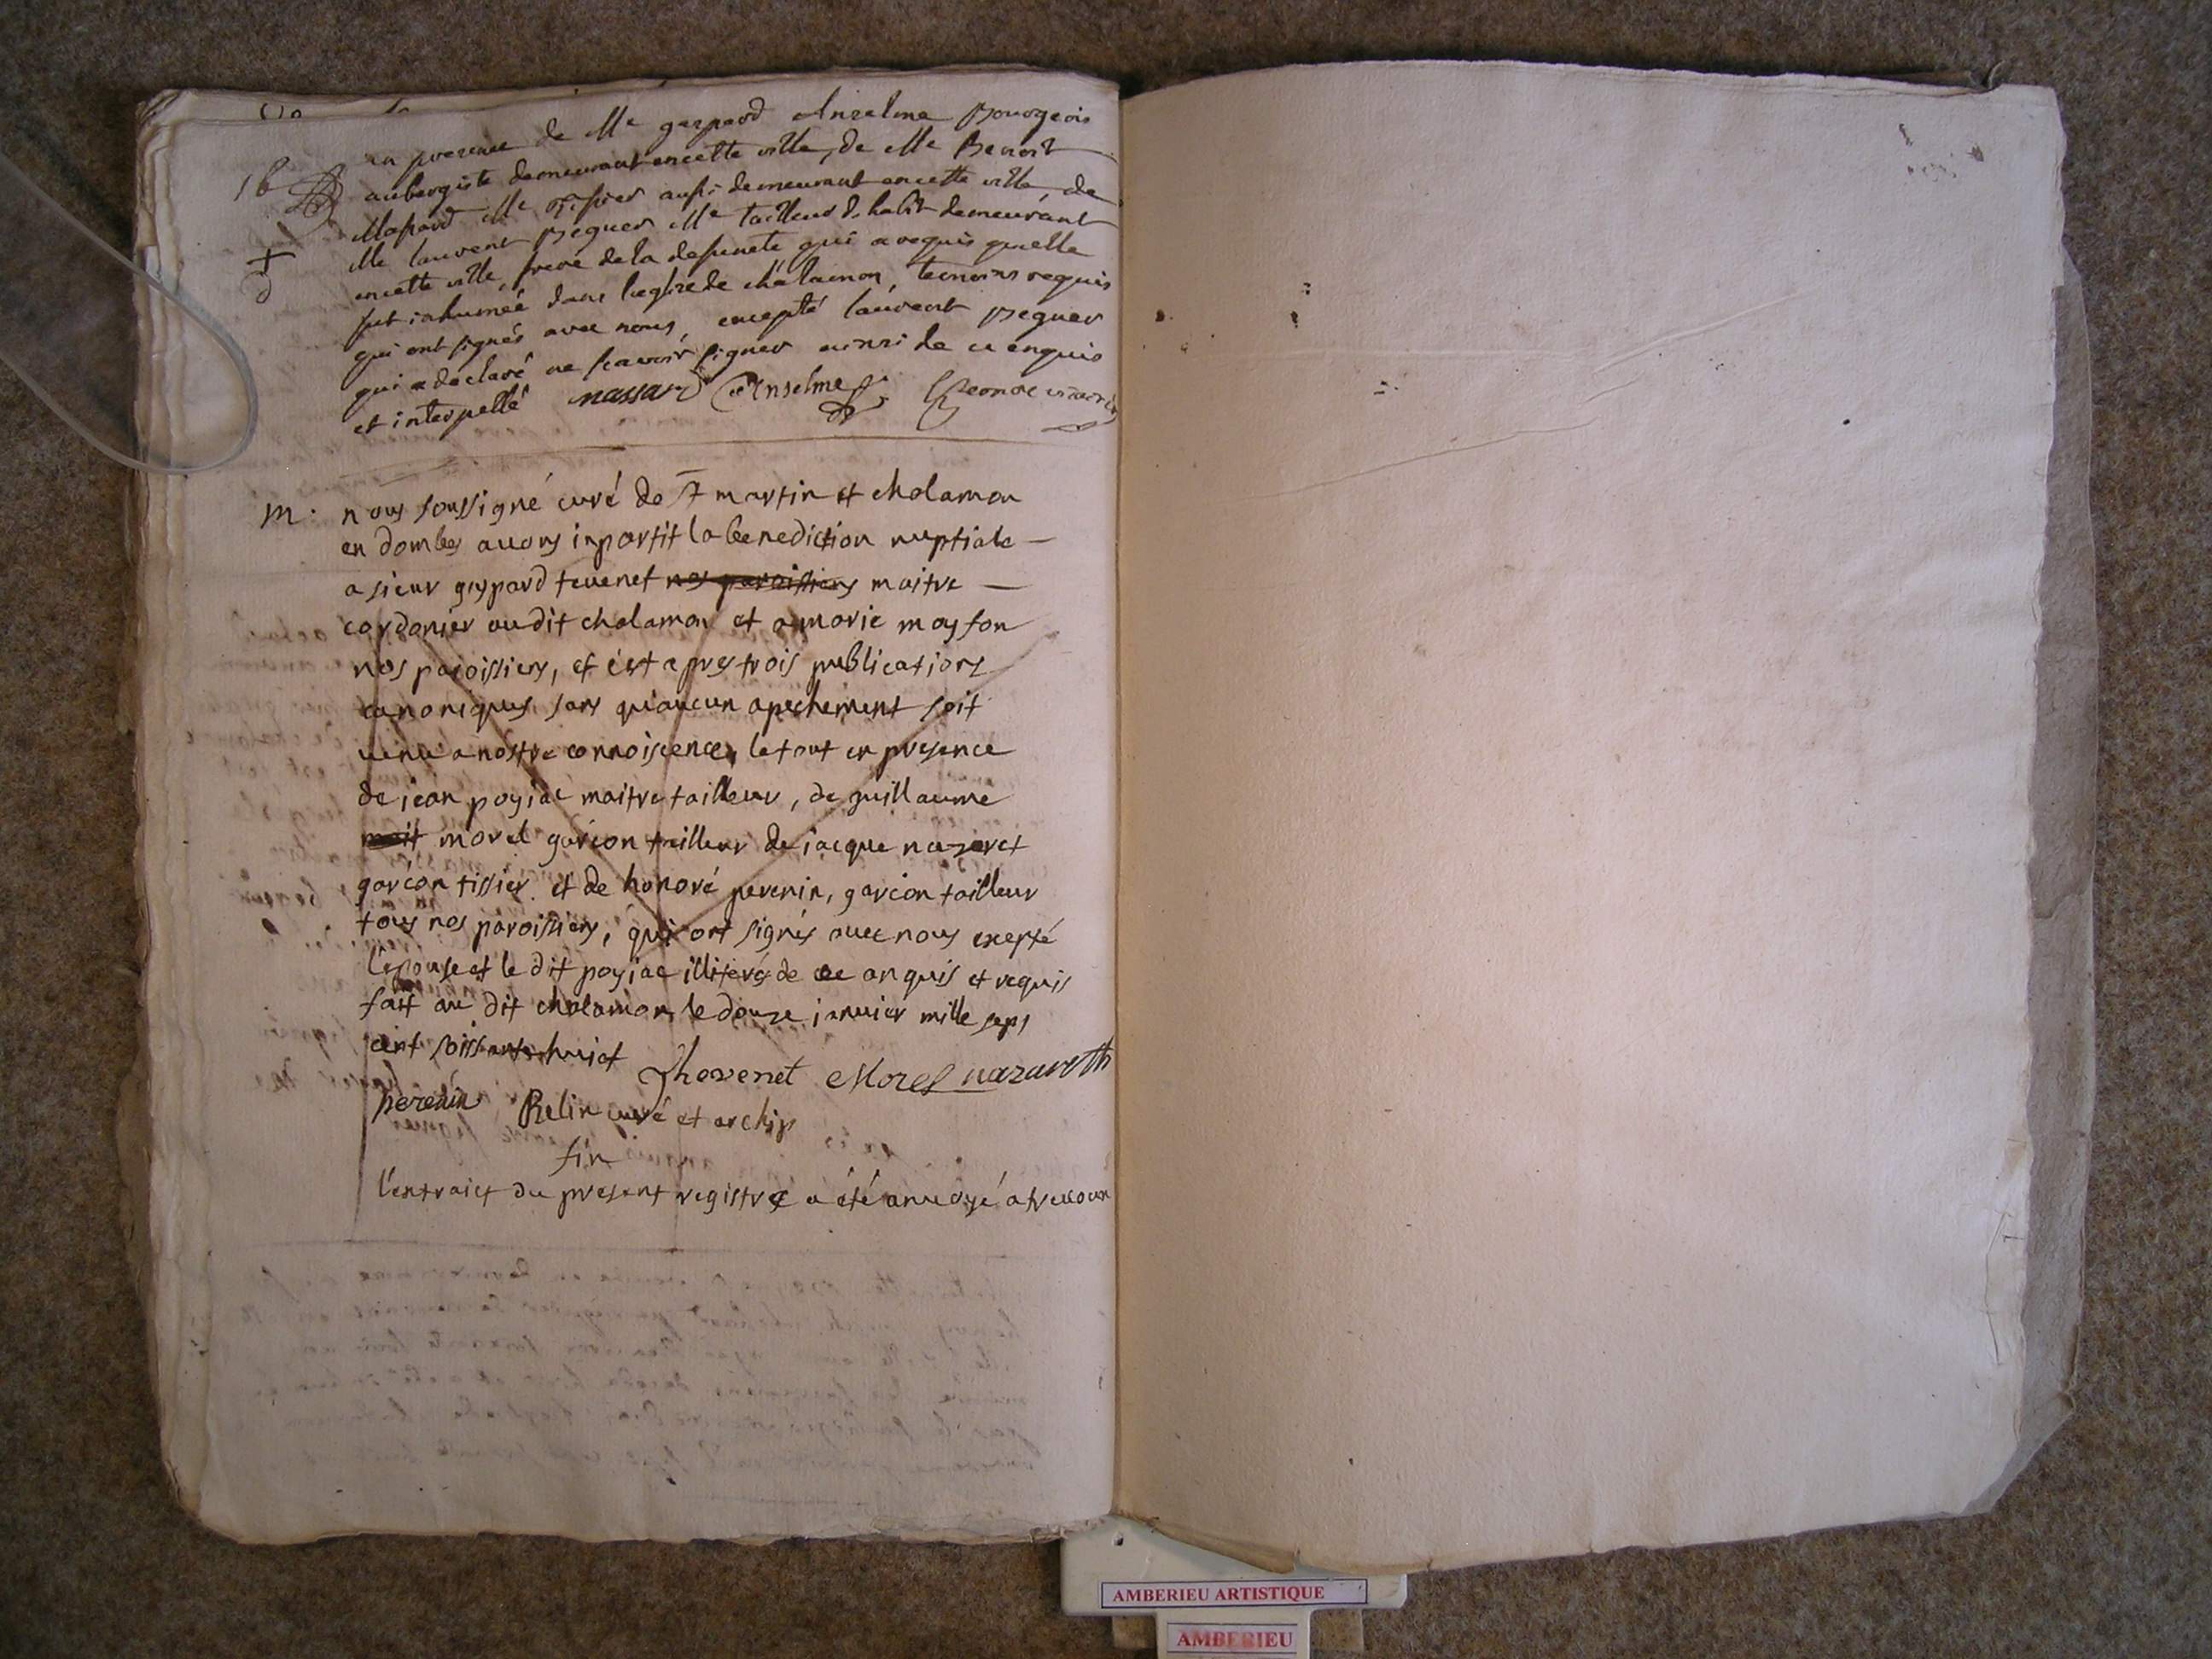 en presence de Me gaspard Anselme Bourgeois
16 aubergiste demeurant encette ville, de Me Benoit
Massard Me Tissier aussi demeurant encette ville, de
Me laurent peguer Me tailleur d. habit demeurant
encette ville, frere dela defuncte qui a requis quelle
fut inhumée dans leglise de châlamon, temoins requis
qui ont signés avec nous, excepté laurent peguer
qui a déclaré ne scavoir signer ainsi de ce enquis
et interpellé massard Anselme
m. nous soussigné curé de St martin et chalamon
en dombes avons inpartit la benediction nuptiale
a sieur gaspard tevenet nos paroissiens maitre
cordonier audit chalamon et a marie moyson
nos paroissiens, et c'est apres trois publications
canoniques, sans qu'aucun apechement soit
venu a nostre connoiscence, le tout en presence
de jean poyjac maitre tailleur, de guillaume
mait morel garcon tailleur de jacque nazaret
garcon tissier et de honoré perenin, garcon tailleur
tous nos paroissiens, qui ont signés avec nous excepté
l'epouse et le dit poyjac illiterés de ce anquis et requis
fait au dit chalamon le douze janvier mille sept
cent soissante huict Thevenet Morel nazareth
perenin Relin curé et archip
fin
l'extraict du present registre a été anvoyé a trevoux
AMBERIEU ARTISTIQUE
AMBERIEU